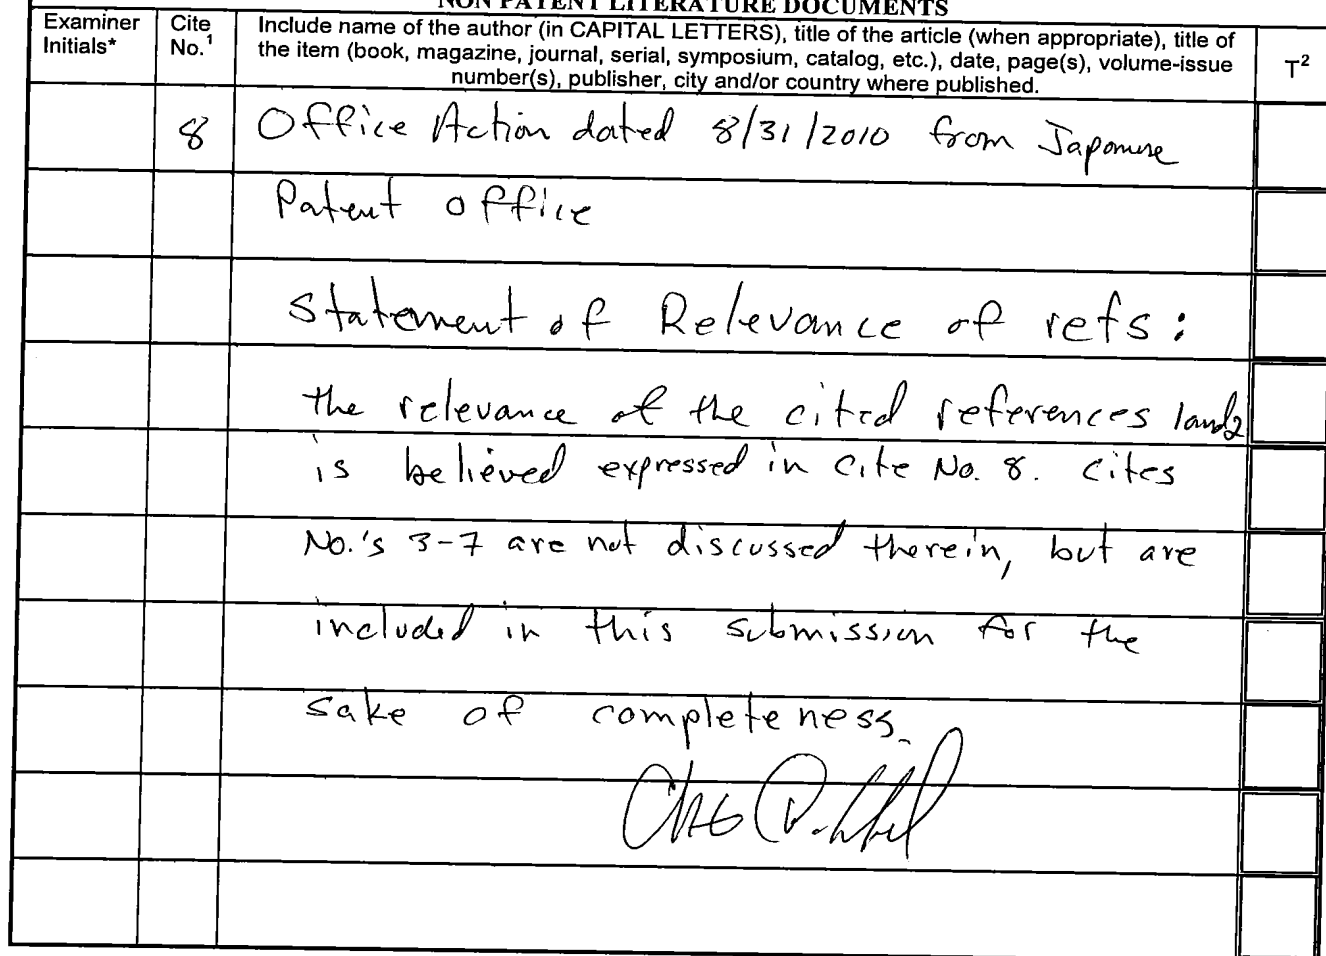 NON PATENT LITERATURE DOCUMENTS
Examiner Initials*
Cite No.1
Include name of the author (in CAPITAL LETTERS), title of the article (when appropriate), title of
the item (book, magazine, journal, serial, symposium, catalog, etc.), date, page(s), volume-issue
number(s), publisher, city and/or country where published.
T2
8 Office Action dated 8/31/2010 from Japanese
Patent office
Statement of Relevance of refs:
the relevance of the cited references 1and2
is believed expressed in Cite No. 8. Cites
No.'s 3-7 are not discussed therein, but are
included in this submission for the
sake of completeness.